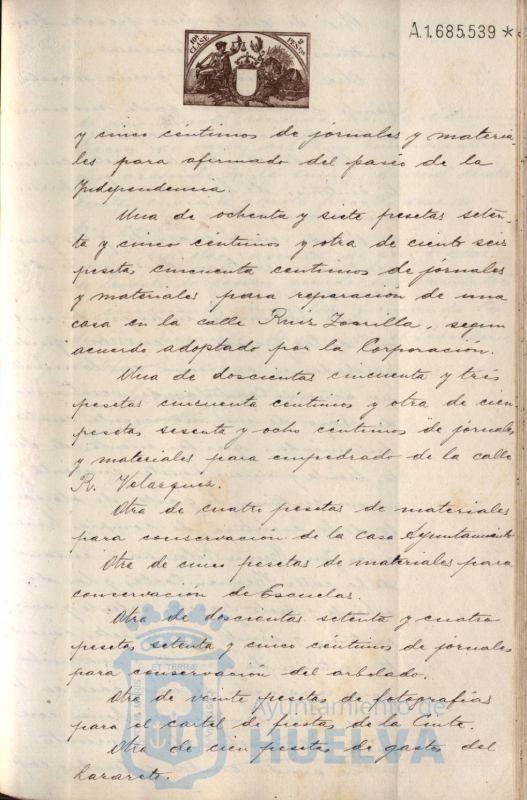 A.1.685.539 *
y cinco céntimos de jornales y materia-
les para afirmado del paseo de la
Independencia.
Una de ochenta y siete pesetas seten-
ta y cinco céntimos y otra de ciento seis
pesetas cincuenta centimos de jornales
y materiales para reparación de una
casa en la calle Ruiz Zorrilla, segun
acuerdo adoptado por la Corporación.
Una de doscientas cincuenta y tres
pesetas cincuenta céntimos y otra de cien
pesetas sesenta y ocho centimos de jornales
y materiales para empedrado de la calle
R. Velazquez.
Otra de cuatro pesetas de materiales
para conservación de la casa Ayuntamiento
Otra de cinco pesetas de materiales para
conservacion de Escuelas.
Otra de doscientas setenta y cuatro
pesetas setenta y cinco céntimos de jornales
para conservación del arbolado.
Otra de veinte pesetas de fotografías
para el cartel de fiestas de la Cinta.
Otra de cien pesetas de gastos del
Lazareto.
Ayuntamiento de
HUELVA